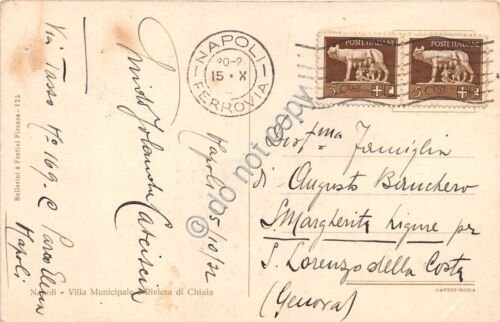 NAPOLI
20-21
15 · X
FERROVIA
POSTE ITALIANE
5 CENT
POSTE ITALIANE
5 CENT
do not copy
Ballerini e Fratini Firenze - 125
Via Tasso N° 169 - C
Parco Elena
Napoli
Jolanda
Napoli 15/10/32
Famiglia
di Augusto Banchero
S. Margherita Ligure per
S. Lorenzo della Costa
(Genova)
Napoli - Villa Municipale - Riviera di Chiaia